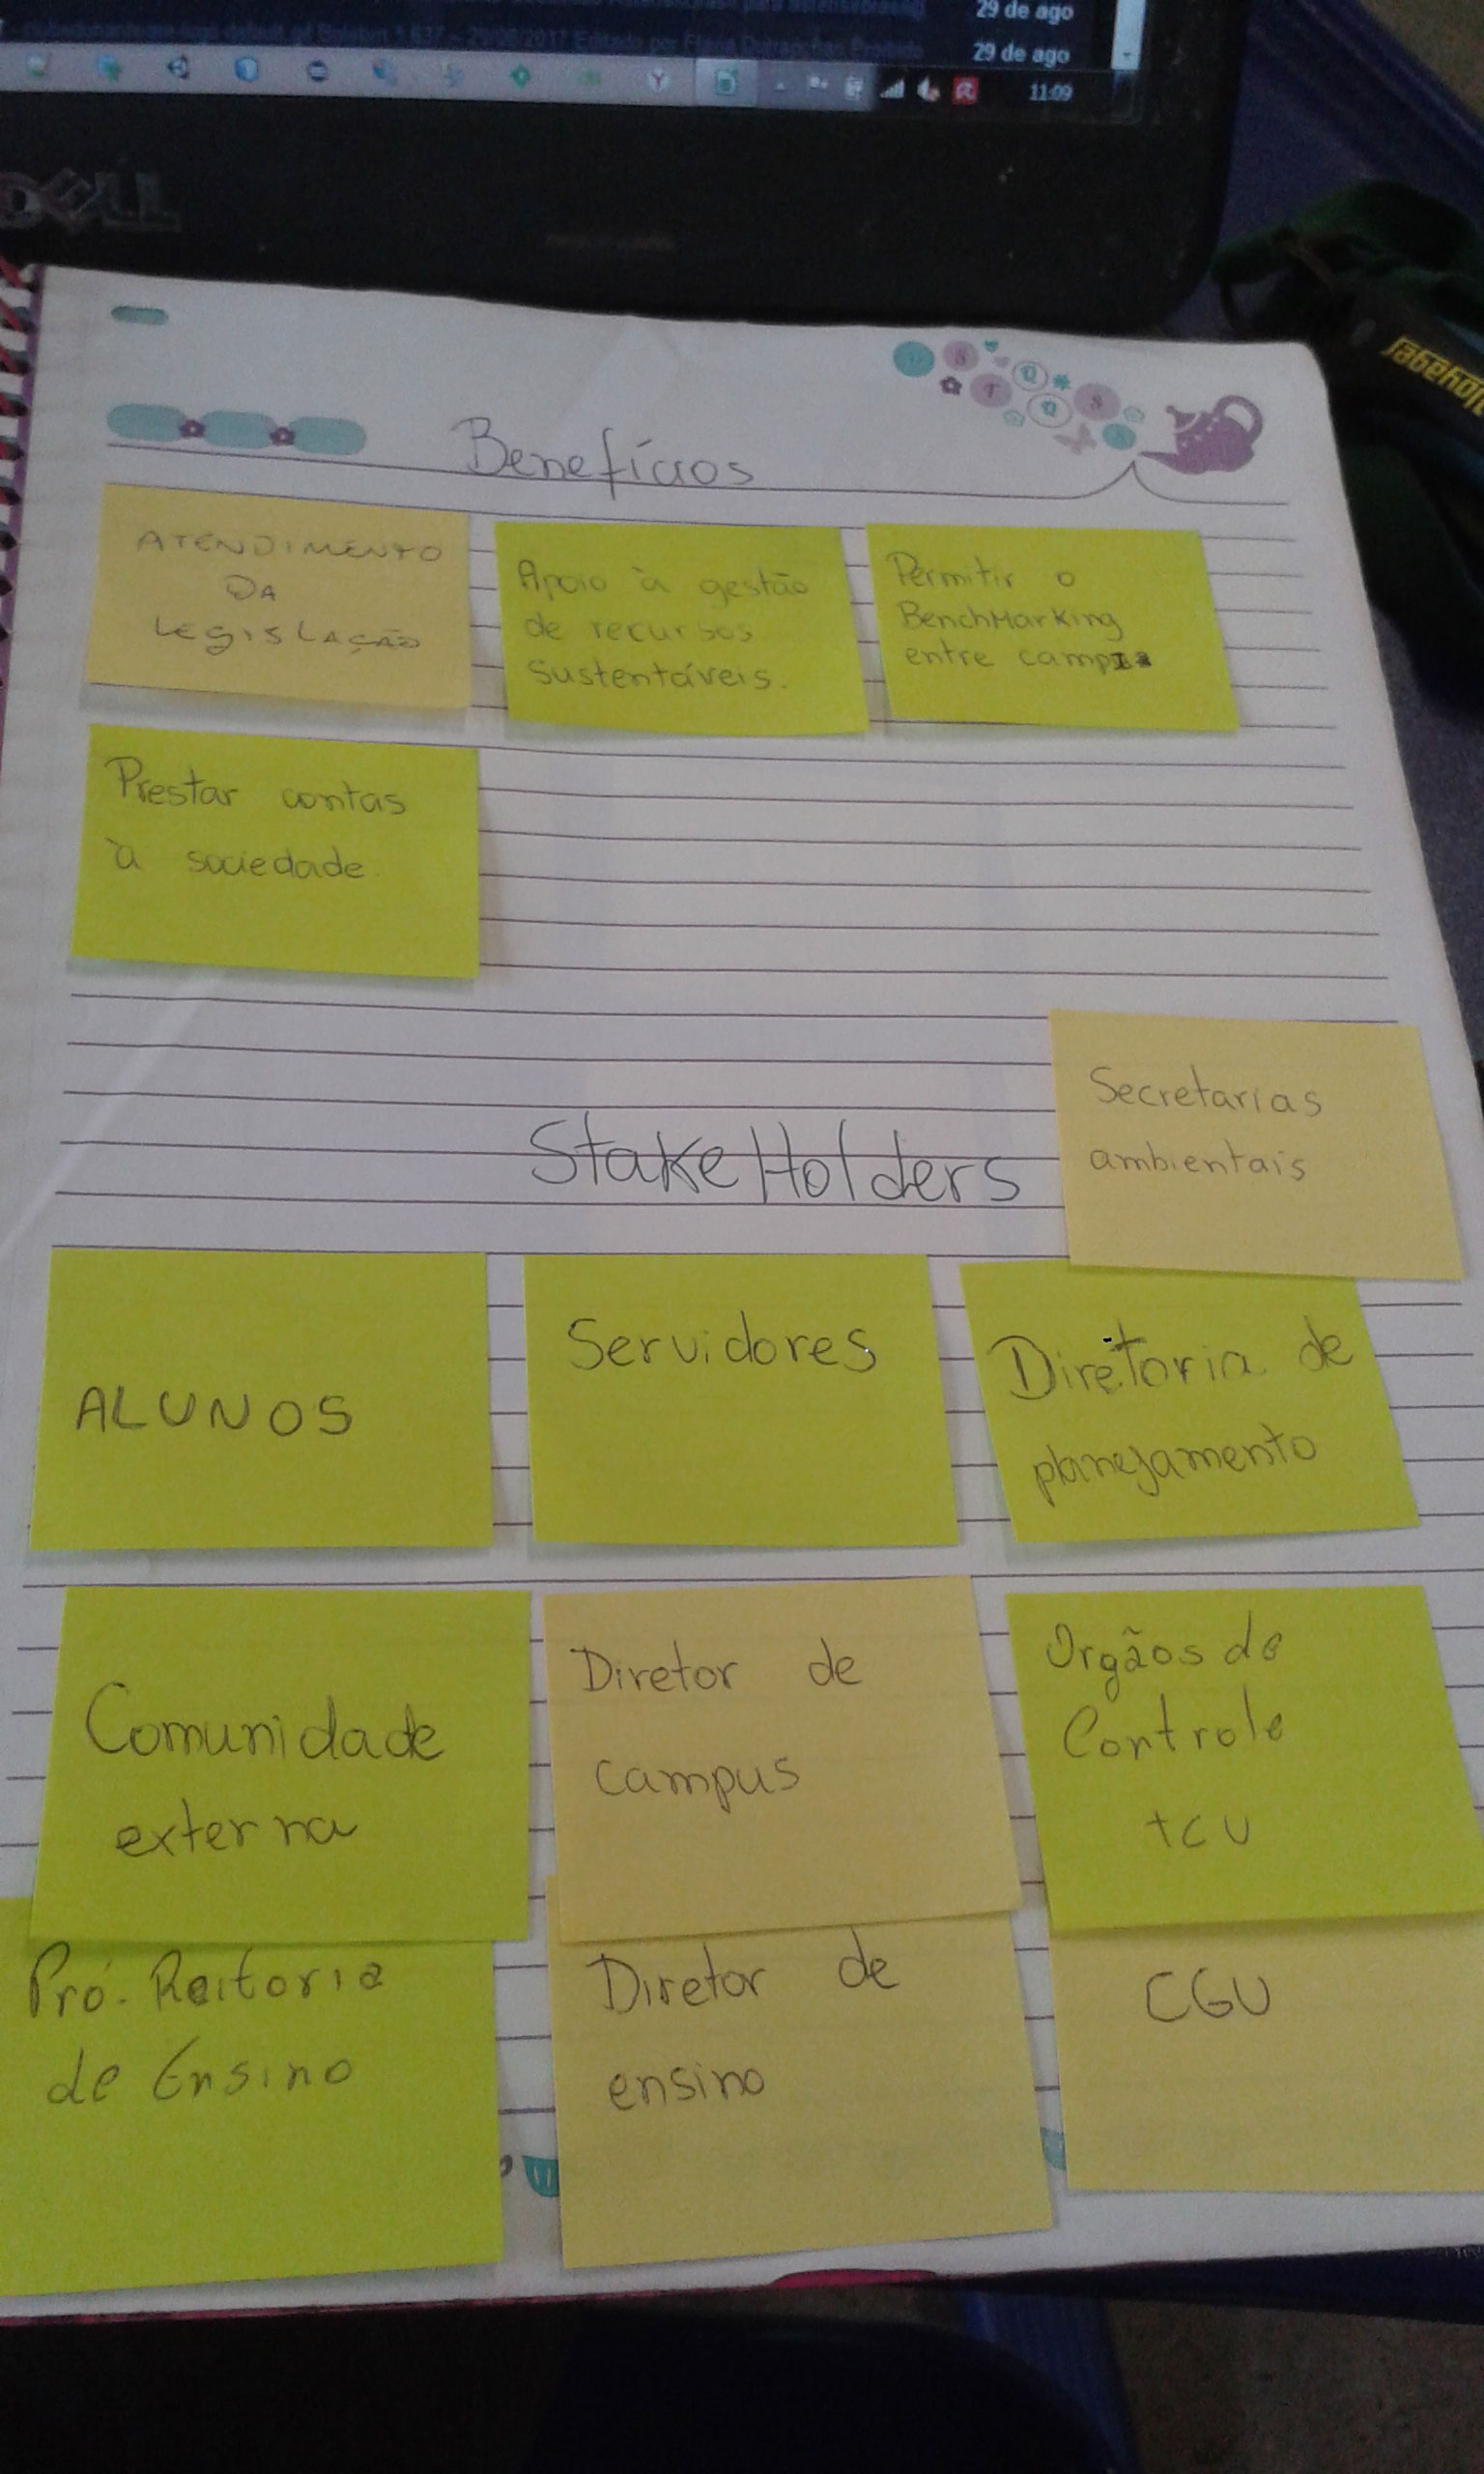 29 de ago
29 de ago
11:09
DELL
Voyager
Benefícios
ATENDIMENTO
DA
LEGISLAÇÃO
Apoio à gestão
de recursos
sustentáveis.
Permitir o
BenchMarking
entre campi
Prestar contas
à sociedade.
StakeHolders
Secretarias
ambientais
ALUNOS
Servidores
Diretoria de
planejamento
Comunidade
externa
Diretor de
campus
Orgãos de
Controle
TCU
Pró-Reitoria
de Ensino
Diretor de
ensino
CGU